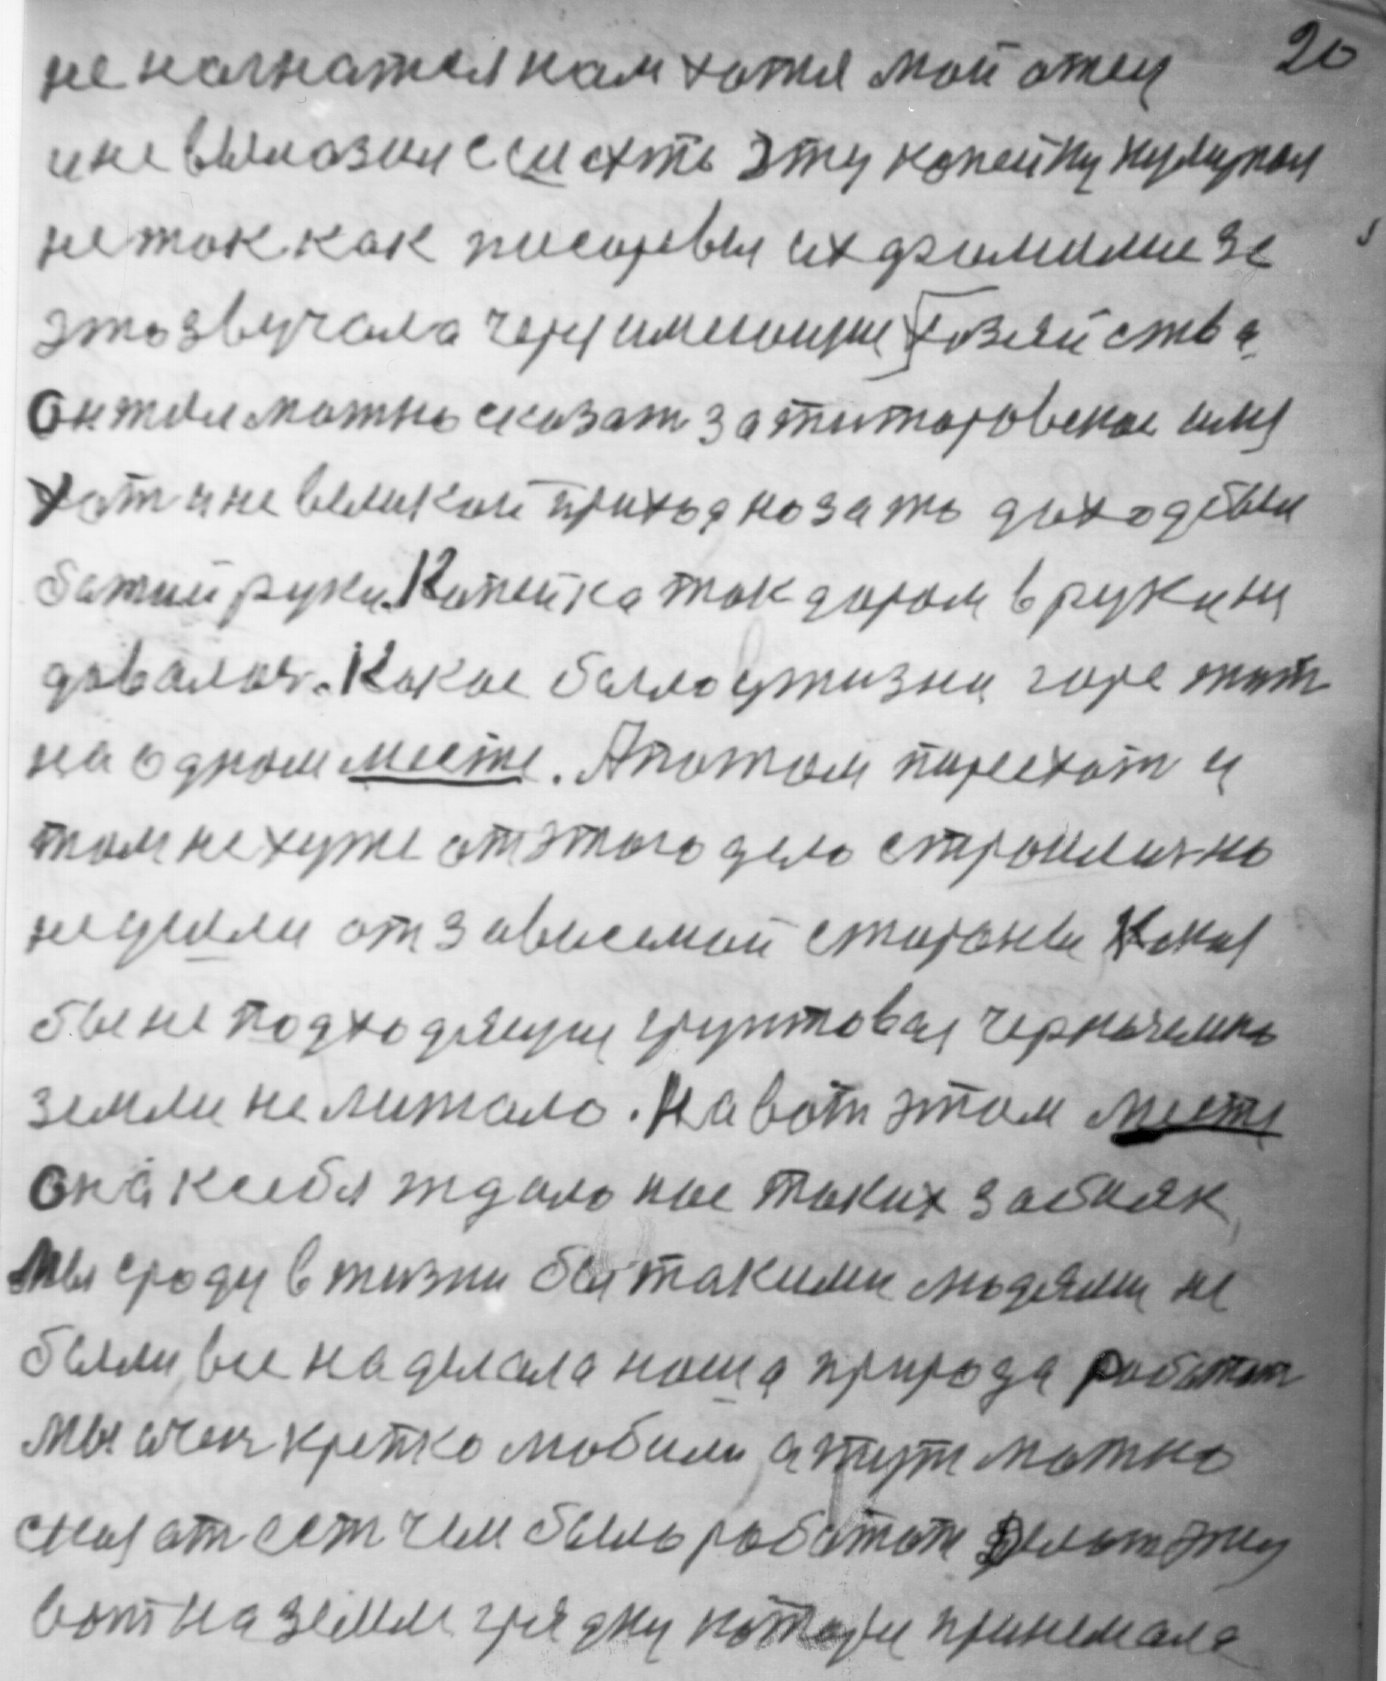 20
не могнатся нам хотя мой отец
и не вылазил с см ахто эту копейку
не так как писаревы их фамилие за
это звучала через имеющие хозяйства
он жил можно сказат за титаровское имя
хотя и не великой приход но зато доход был
божий руки. Копейка так даром в руки ни
довалос. Какое было ужизни горе жит
на одном месте. А потом пиреехат и
там не хуже от этого дело строилис но
не ушли от зависемой стороны
бы не подходящия грунтовая черначемно
земли не литало. На вот этом месте
она к себя ждало нас таких забияк,
мы сроду в жизни бы такими людями не
были, все наделала наша природа работат
мы очен крепко любили а тут можно
сказат ест чем было работат Делат эту
вот на земли грядку которы принемала